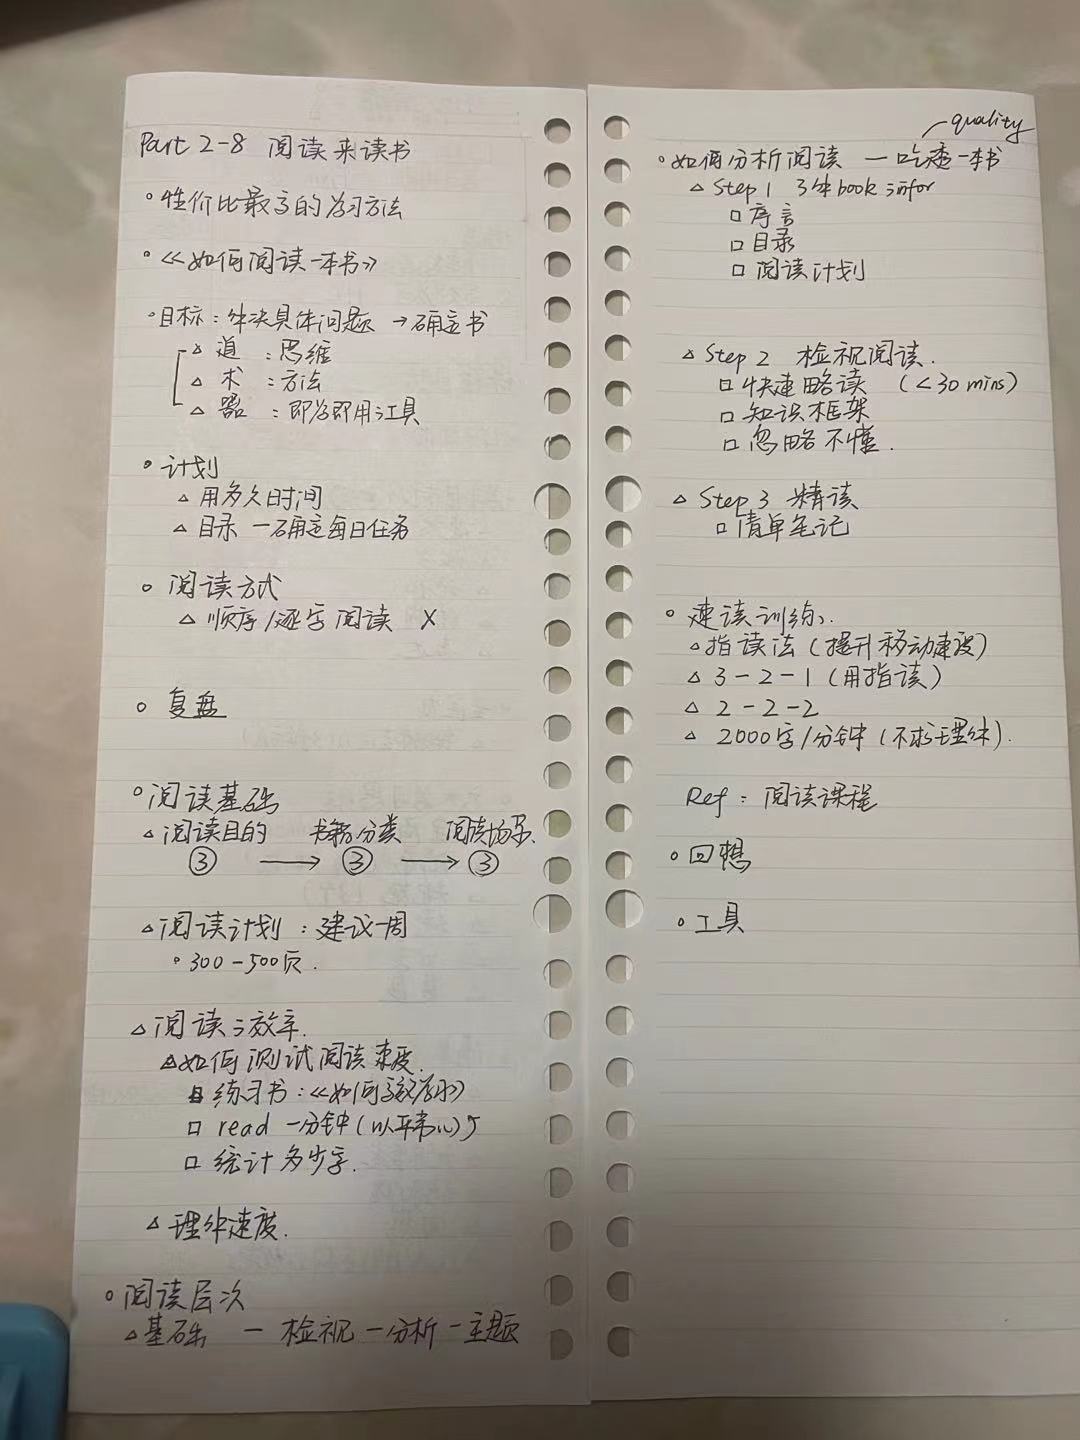 Part 2-8 阅读来读书
◦ 性价比最高的学习方法
◦ 《如何阅读一本书》
◦ 目标：解决具体问题 → 确定书
△ 道 ：思维
△ 术 ：方法
△ 器 ：即学即用工具
◦ 计划
△ 用多久时间
△ 目录 — 确定每日任务
◦ 阅读方式
△ 顺序/逐字阅读 X
◦ 复盘
◦ 阅读基础
△ 阅读目的 书籍分类 阅读场景
③ → ③ → ③
△ 阅读计划：建议一周
◦ 300-500页.
△ 阅读效率.
△ 如何测试阅读速度.
□ 练习书：《如何高效学习》
□ read 一分钟(以平常心)
□ 统计多少字.
△ 理解速度.
◦ 阅读层次
△ 基础 — 检视 — 分析 — 主题
quality
◦ 如何分析阅读 — 吃透一本书
△ Step 1 了解book infor
□ 序言
□ 目录
□ 阅读计划
△ Step 2 检视阅读.
□ 快速略读 (<30 mins)
□ 知识框架
□ 忽略不懂.
△ Step 3 精读
□ 清单笔记
◦ 速读训练.
△ 指读法(提升移动速度)
△ 3-2-1(用指读)
△ 2-2-2
△ 2000字/分钟(不求理解).
Ref：阅读课程
◦ 回想
◦ 工具